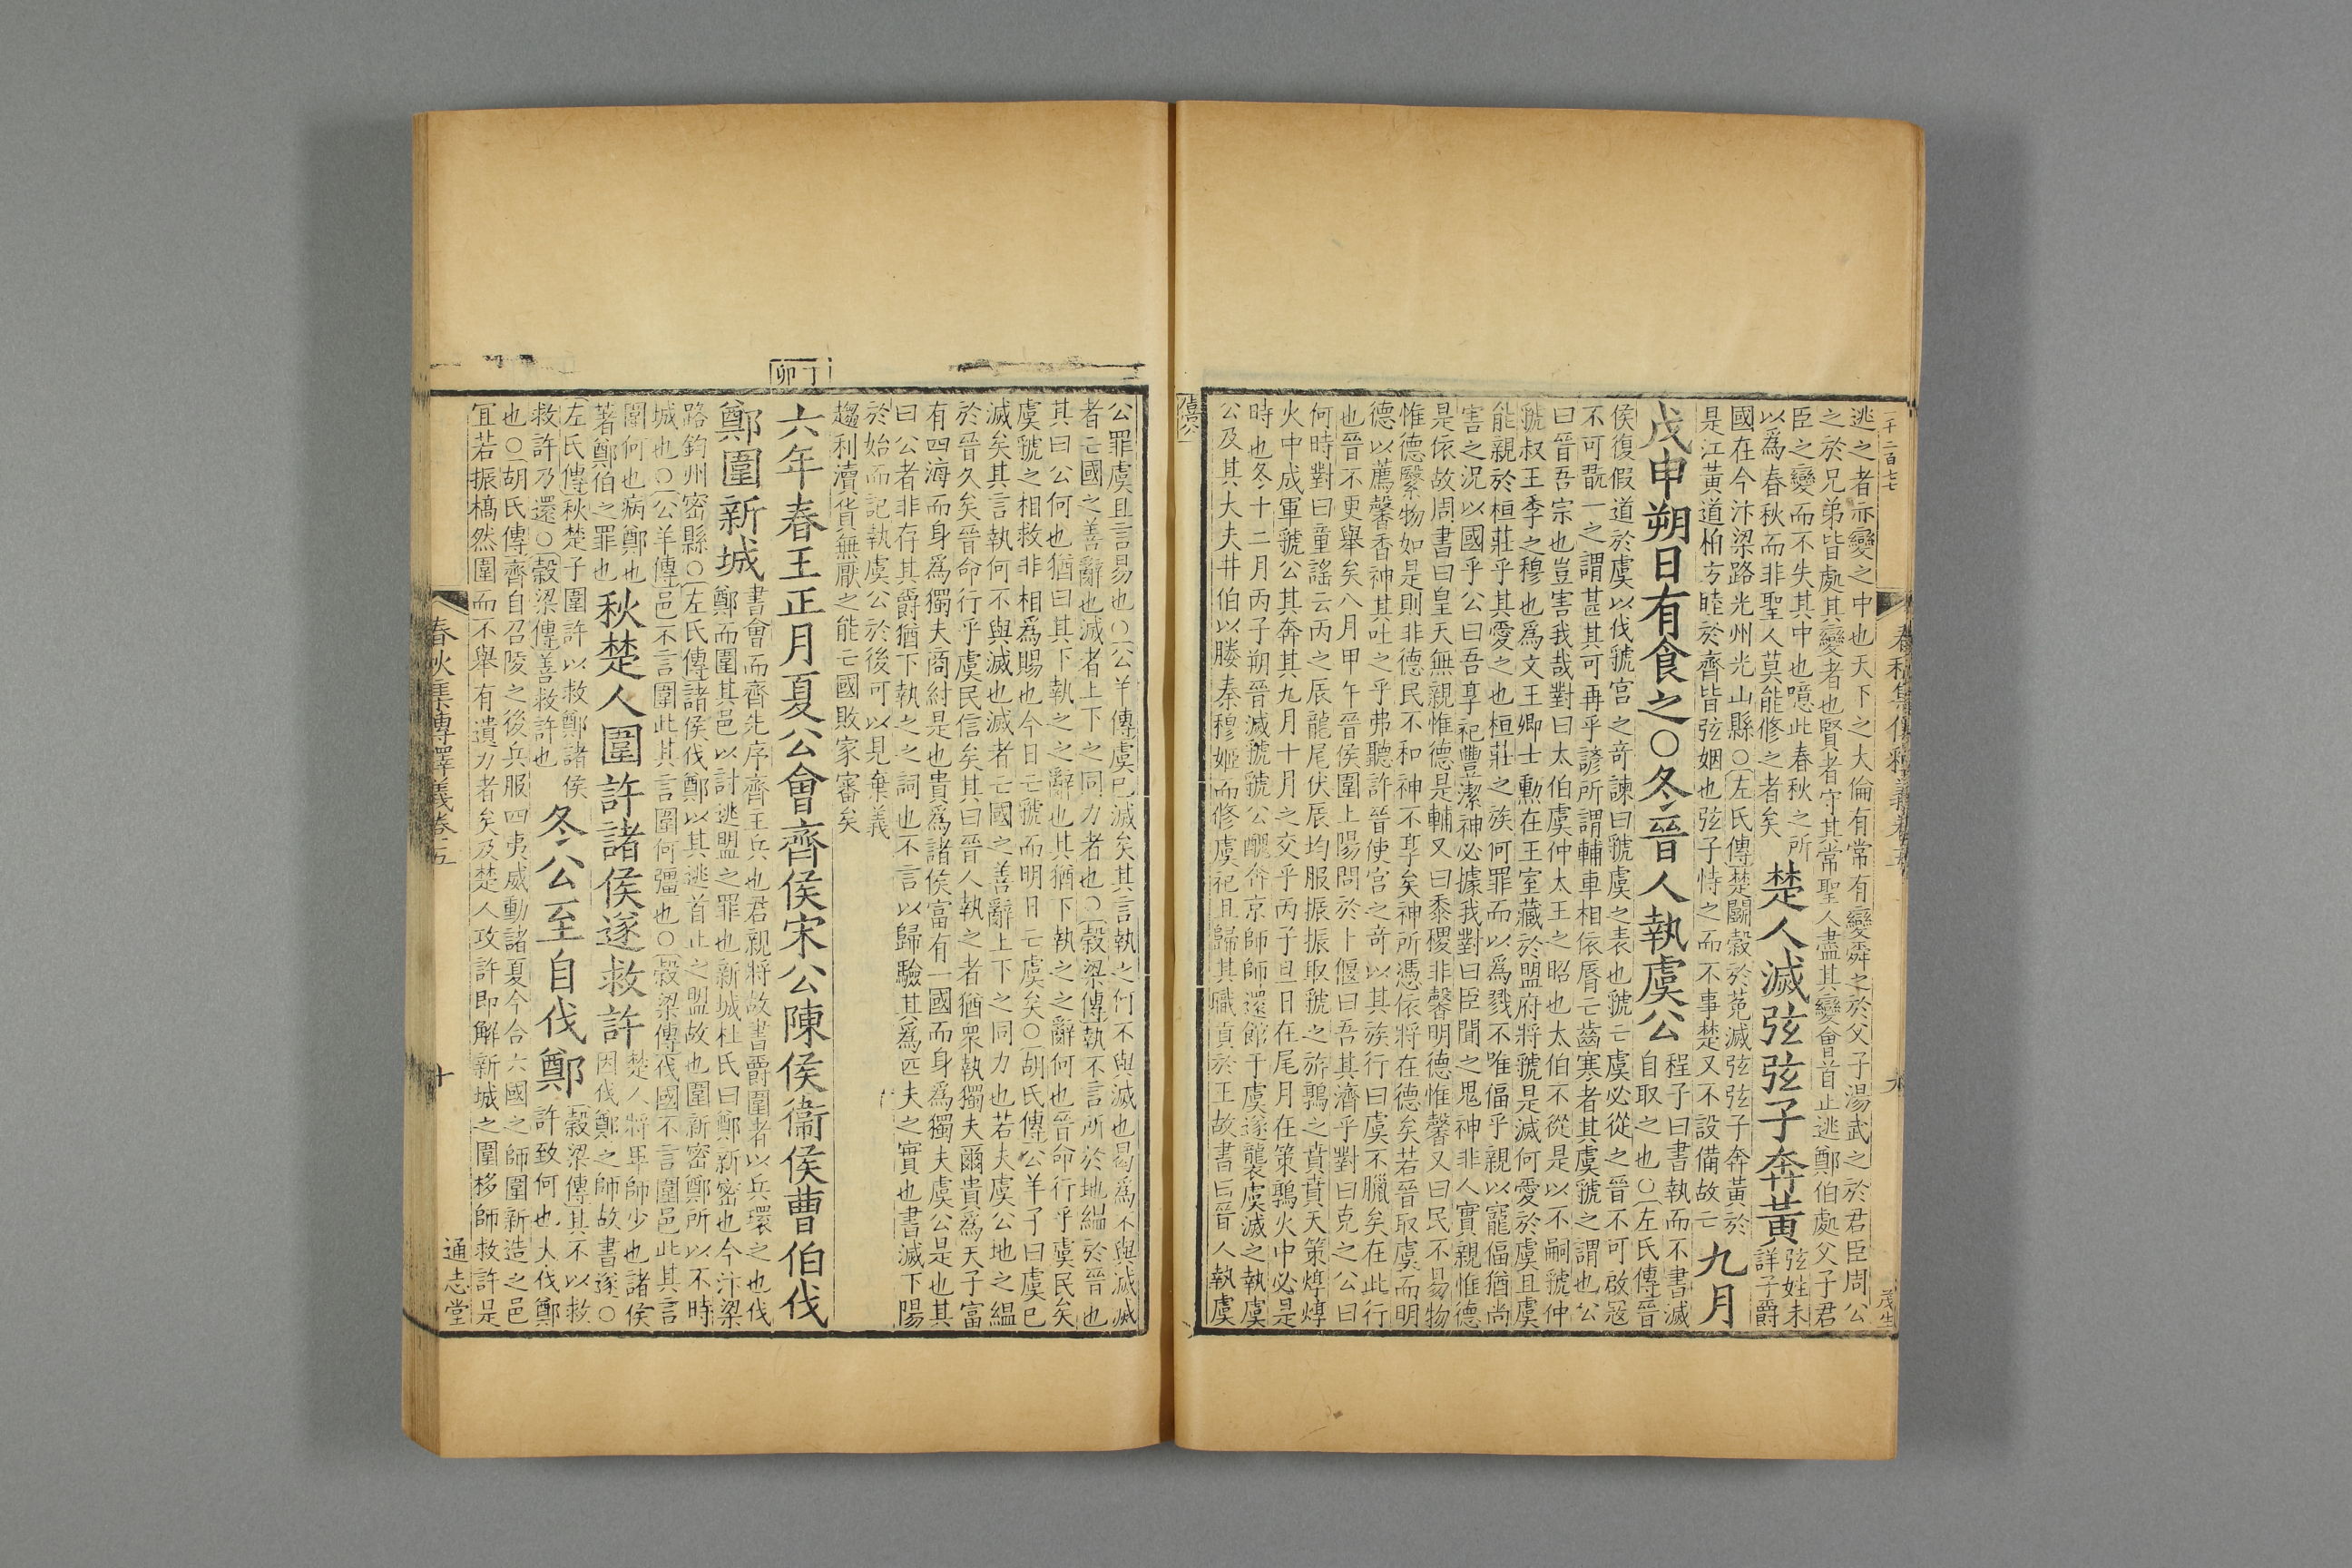 一千二百七七
春秋集傳釋義卷五
九
茂生
逃之者亦變之中也天下之大倫有常有變舜之於父子湯武之於君臣周公
之於兄弟皆處其變者也賢者守其常聖人盡其變會首止逃鄭伯處父子君
臣之變而不失其中也噫此春秋之所
以為春秋而非聖人莫能修之者矣
楚人滅弦弦子奔黃
弦姓未
詳子爵
國在今汴梁路光州光山縣○左氏傳楚鬬穀於菟滅弦弦子奔黃於
是江黃道柏方睦於齊皆弦姻也弦子恃之而不事楚又不設備故亡
九月
戊申朔日有食之○冬晉人執虞公
程子曰書執而不書滅
自取之也○左氏傳晉
侯復假道於虞以伐虢宮之奇諫曰虢虞之表也虢亡虞必從之晉不可啟寇
不可翫一之謂甚其可再乎諺所謂輔車相依脣亡齒寒者其虞虢之謂也公
曰晉吾宗也豈害我哉對曰太伯虞仲大王之昭也太伯不從是以不嗣虢仲
虢叔王季之穆也為文王卿士勳在王室藏於盟府將虢是滅何愛於虞且虞
能親於桓莊乎其愛之也桓莊之族何罪而以為戮不唯偪乎親以寵偪猶尚
害之況以國乎公曰吾享祀豐潔神必據我對曰臣聞之鬼神非人實親惟德
是依故周書曰皇天無親惟德是輔又曰黍稷非馨明德惟馨又曰民不易物
惟德繄物如是則非德民不和神不享矣神所馮依將在德矣若晉取虞而明
德以薦馨香神其吐之乎弗聽許晉使宮之奇以其族行曰虞不臘矣在此行
也晉不更舉矣八月甲午晉侯圍上陽問於卜偃曰吾其濟乎對曰克之公曰
何時對曰童謠云丙之辰龍尾伏辰均服振振取虢之旂鶉之賁賁天策焞焞
火中成軍虢公其奔其九月十月之交乎丙子旦日在尾月在策鶉火中必是
時也冬十二月丙子朔晉滅虢虢公醜奔京師師還館于虞遂襲虞滅之執虞
公及其大夫井伯以媵秦穆姬而修虞祀且歸其職貢於王故書曰晉人執虞
僖公
公罪虞且言易也○公羊傳虞已滅矣其言執之何不與滅也曷為不與滅滅
者亡國之善辭也滅者上下之同力者也○穀梁傳執不言所於地縕於晉也
其曰公何也猶曰其下執之之辭也其猶下執之之辭何也晉命行乎虞民矣
虞虢之相救非相為賜也今日亡虢而明日亡虞矣○胡氏傳公羊子曰虞已
滅矣其言執何不與滅也滅者亡國之善辭上下之同力也若夫虞公地之縕
於晉久矣晉命行乎虞民信矣其曰晉人執之者猶衆執獨夫爾貴為天子富
有四海而身為獨夫商紂是也貴為諸侯富有一國而身為獨夫虞公是也其
曰公者非存其爵猶下執之之詞也不言以歸驗其為匹夫之實也書滅下陽
於始而記執虞公於後可以見棄義
趨利瀆貨無厭之能亡國敗家審矣
丁卯
六年春王正月夏公會齊侯宋公陳侯衞侯曹伯伐
鄭圍新城
書會而齊先序齊主兵也君親將故書爵圍者以兵環之也伐
鄭而圍其邑以討逃盟之罪也新城杜氏曰鄭新密也今汴梁
路鈞州密縣○左氏傳諸侯伐鄭以其逃首止之盟故也圍新密鄭所以不時
城也○公羊傳邑不言圍此其言圍何彊也○穀梁傳伐國不言圍邑此其言
圍何也病鄭也
著鄭伯之罪也
秋楚人圍許諸侯遂救許
楚人將卑師少也諸侯
因伐鄭之師故書遂○
左氏傳秋楚子圍許以救鄭諸侯
救許乃還○穀梁傳善救許也
冬公至自伐鄭
穀梁傳其不以救
許致何也大伐鄭
也○胡氏傳齊自召陵之後兵服四夷威動諸夏今合六國之師圍新造之邑
宜若振槁然圍而不舉有遺力者矣及楚人攻許即解新城之圍移師救許是
春秋集傳釋義卷五
十
通志堂